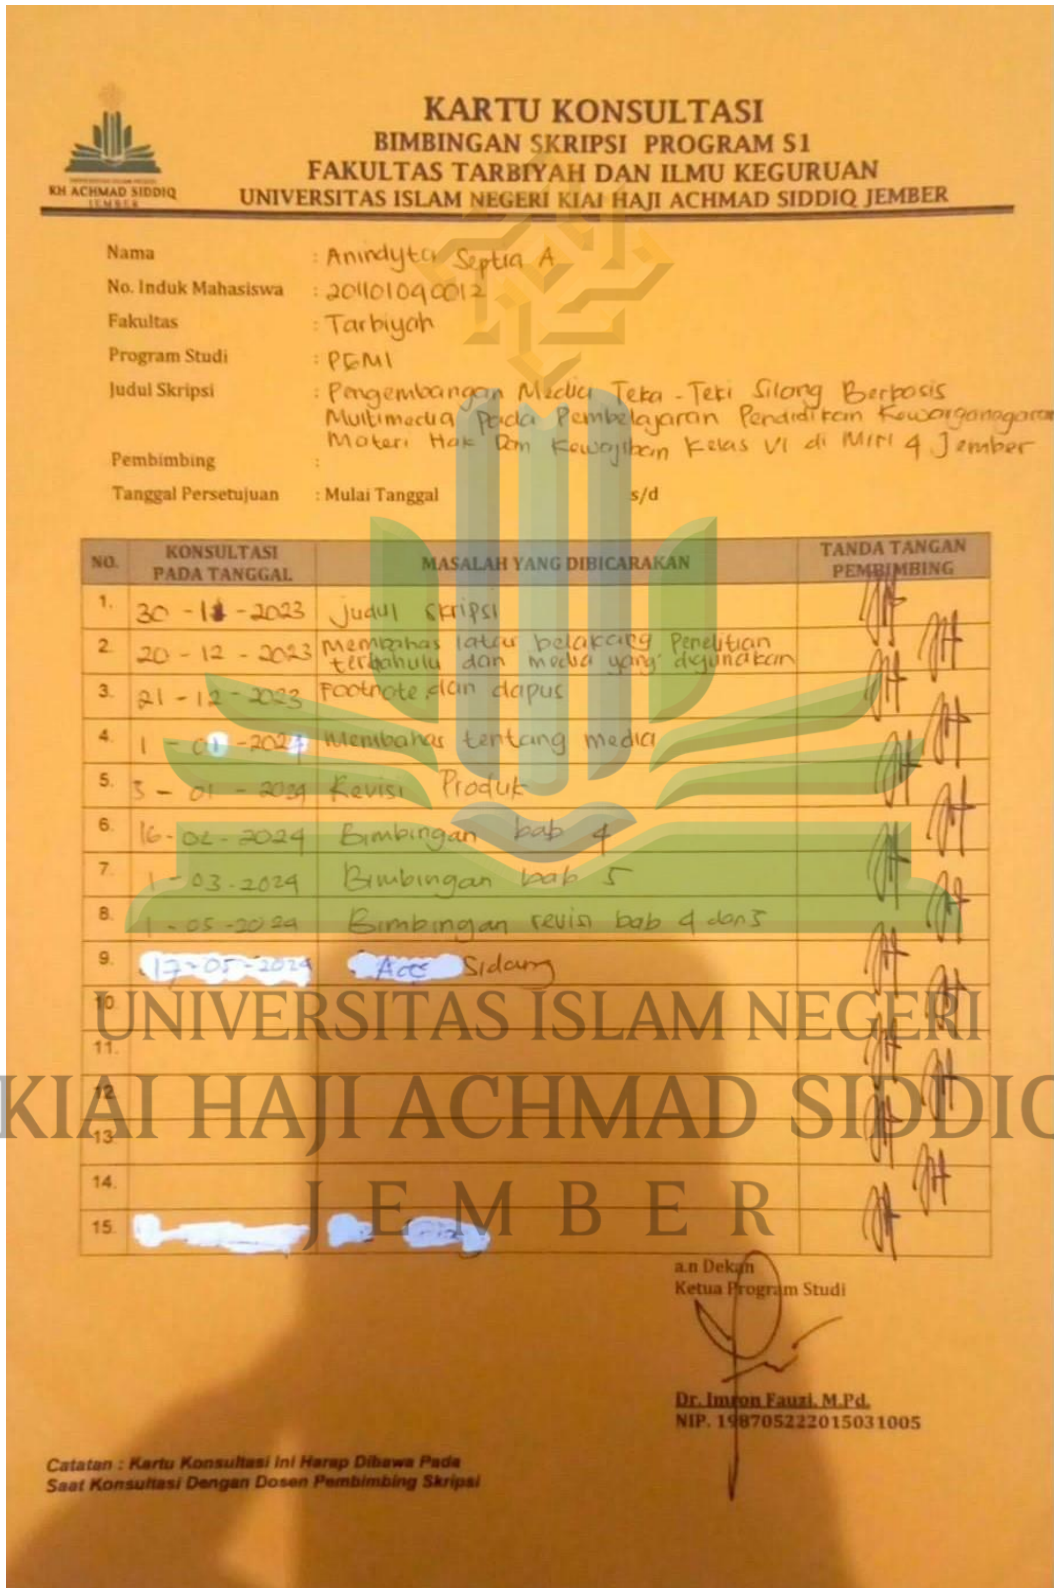 KH ACHMAD SIDDIQ
JEMBER
KARTU KONSULTASI
BIMBINGAN SKRIPSI PROGRAM S1
FAKULTAS TARBIYAH DAN ILMU KEGURUAN
UNIVERSITAS ISLAM NEGERI KIAI HAJI ACHMAD SIDDIQ JEMBER
Nama : Anindyta Septia A
No. Induk Mahasiswa : 201101040012
Fakultas : Tarbiyah
Program Studi : PGMI
Judul Skripsi : Pengembangan Media Teka-Teki Silang Berbasis
Multimedia Pada Pembelajaran Pendidikan Kewarganegaraan
Materi Hak Dan Kewajiban Kelas VI di MIN 4 Jember
Pembimbing :
Tanggal Persetujuan : Mulai Tanggal s/d
NO. KONSULTASI PADA TANGGAL MASALAH YANG DIBICARAKAN TANDA TANGAN PEMBIMBING
1. 30 - 11 - 2023 Judul Skripsi
2. 20 - 12 - 2023 Membahas latar belakang Penelitian
terdahulu dan media yang digunakan
3. 21 - 12 - 2023 Footnote dan dapus
4. 1 - 01 - 2024 Membahas tentang media
5. 3 - 01 - 2024 Revisi Produk
6. 16 - 02 - 2024 Bimbingan bab 4
7. 1 - 03 - 2024 Bimbingan bab 5
8. 1 - 05 - 2024 Bimbingan revisi bab 4 dan 5
9. 17 - 05 - 2024 Acc Sidang
10.
11.
12.
13.
14.
15.
UNIVERSITAS ISLAM NEGERI
KIAI HAJI ACHMAD SIDDIQ
JEMBER
a.n Dekan
Ketua Program Studi
Dr. Imron Fauzi, M.Pd.
NIP. 198705222015031005
Catatan : Kartu Konsultasi Ini Harap Dibawa Pada
Saat Konsultasi Dengan Dosen Pembimbing Skripsi